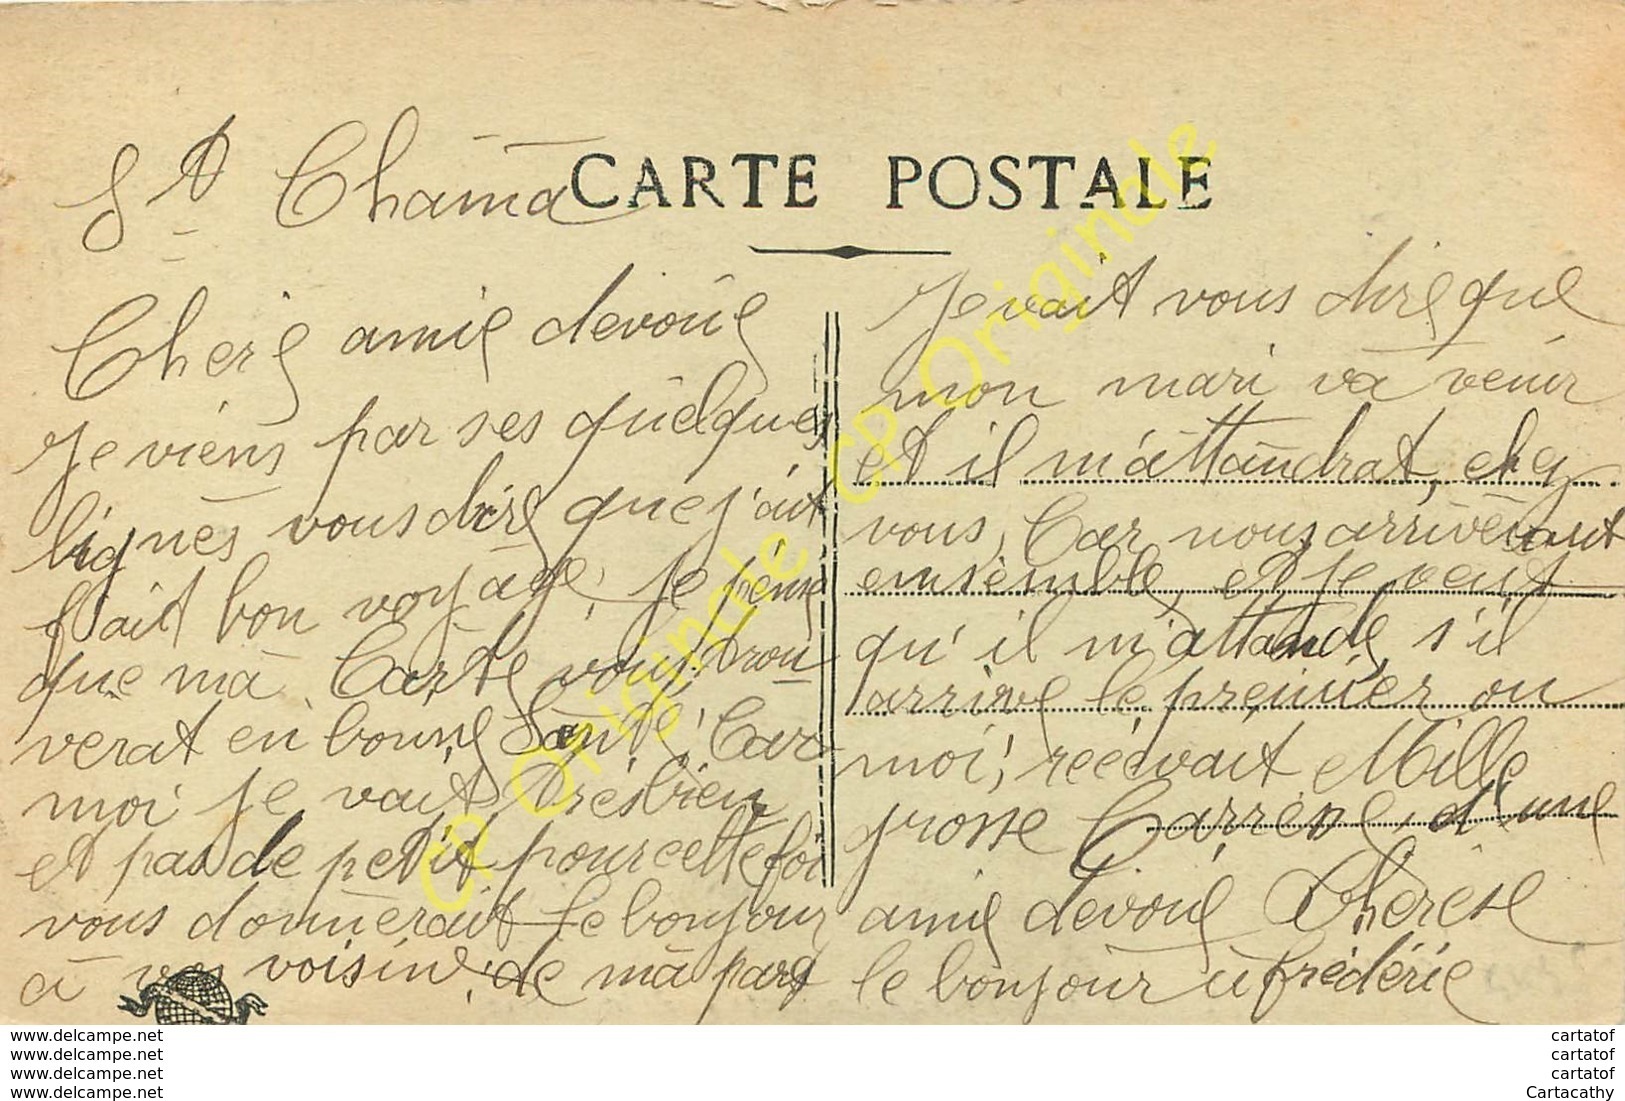 St Chama
CARTE POSTALE
Cherie amie devoue
Je viens par ses quelques
lignes vous dire que j'ait
fait bon voyage, je pense
que ma Carte vous trou
verat en bonne Santé, Car
moi je vait très bien
et pas de petit pour cette foi
vous donnerait le bonjour
à vos voisins, de ma part
Je vait vous dire que
mon mari va venir
et il m'attandrat, chez
vous, Car nous arriveront
ensemble, et je veut
qu'il m'attande, s'il
arrive le premier ou
moi, recevait Mille
grosse Carresse, d'une
amie devoue Therese
le bonjour a frédéric
CP Originde CP Originde CP Originde
www.delcampe.net
www.delcampe.net
www.delcampe.net
www.delcampe.net
cartatof
cartatof
cartatof
Cartacathy